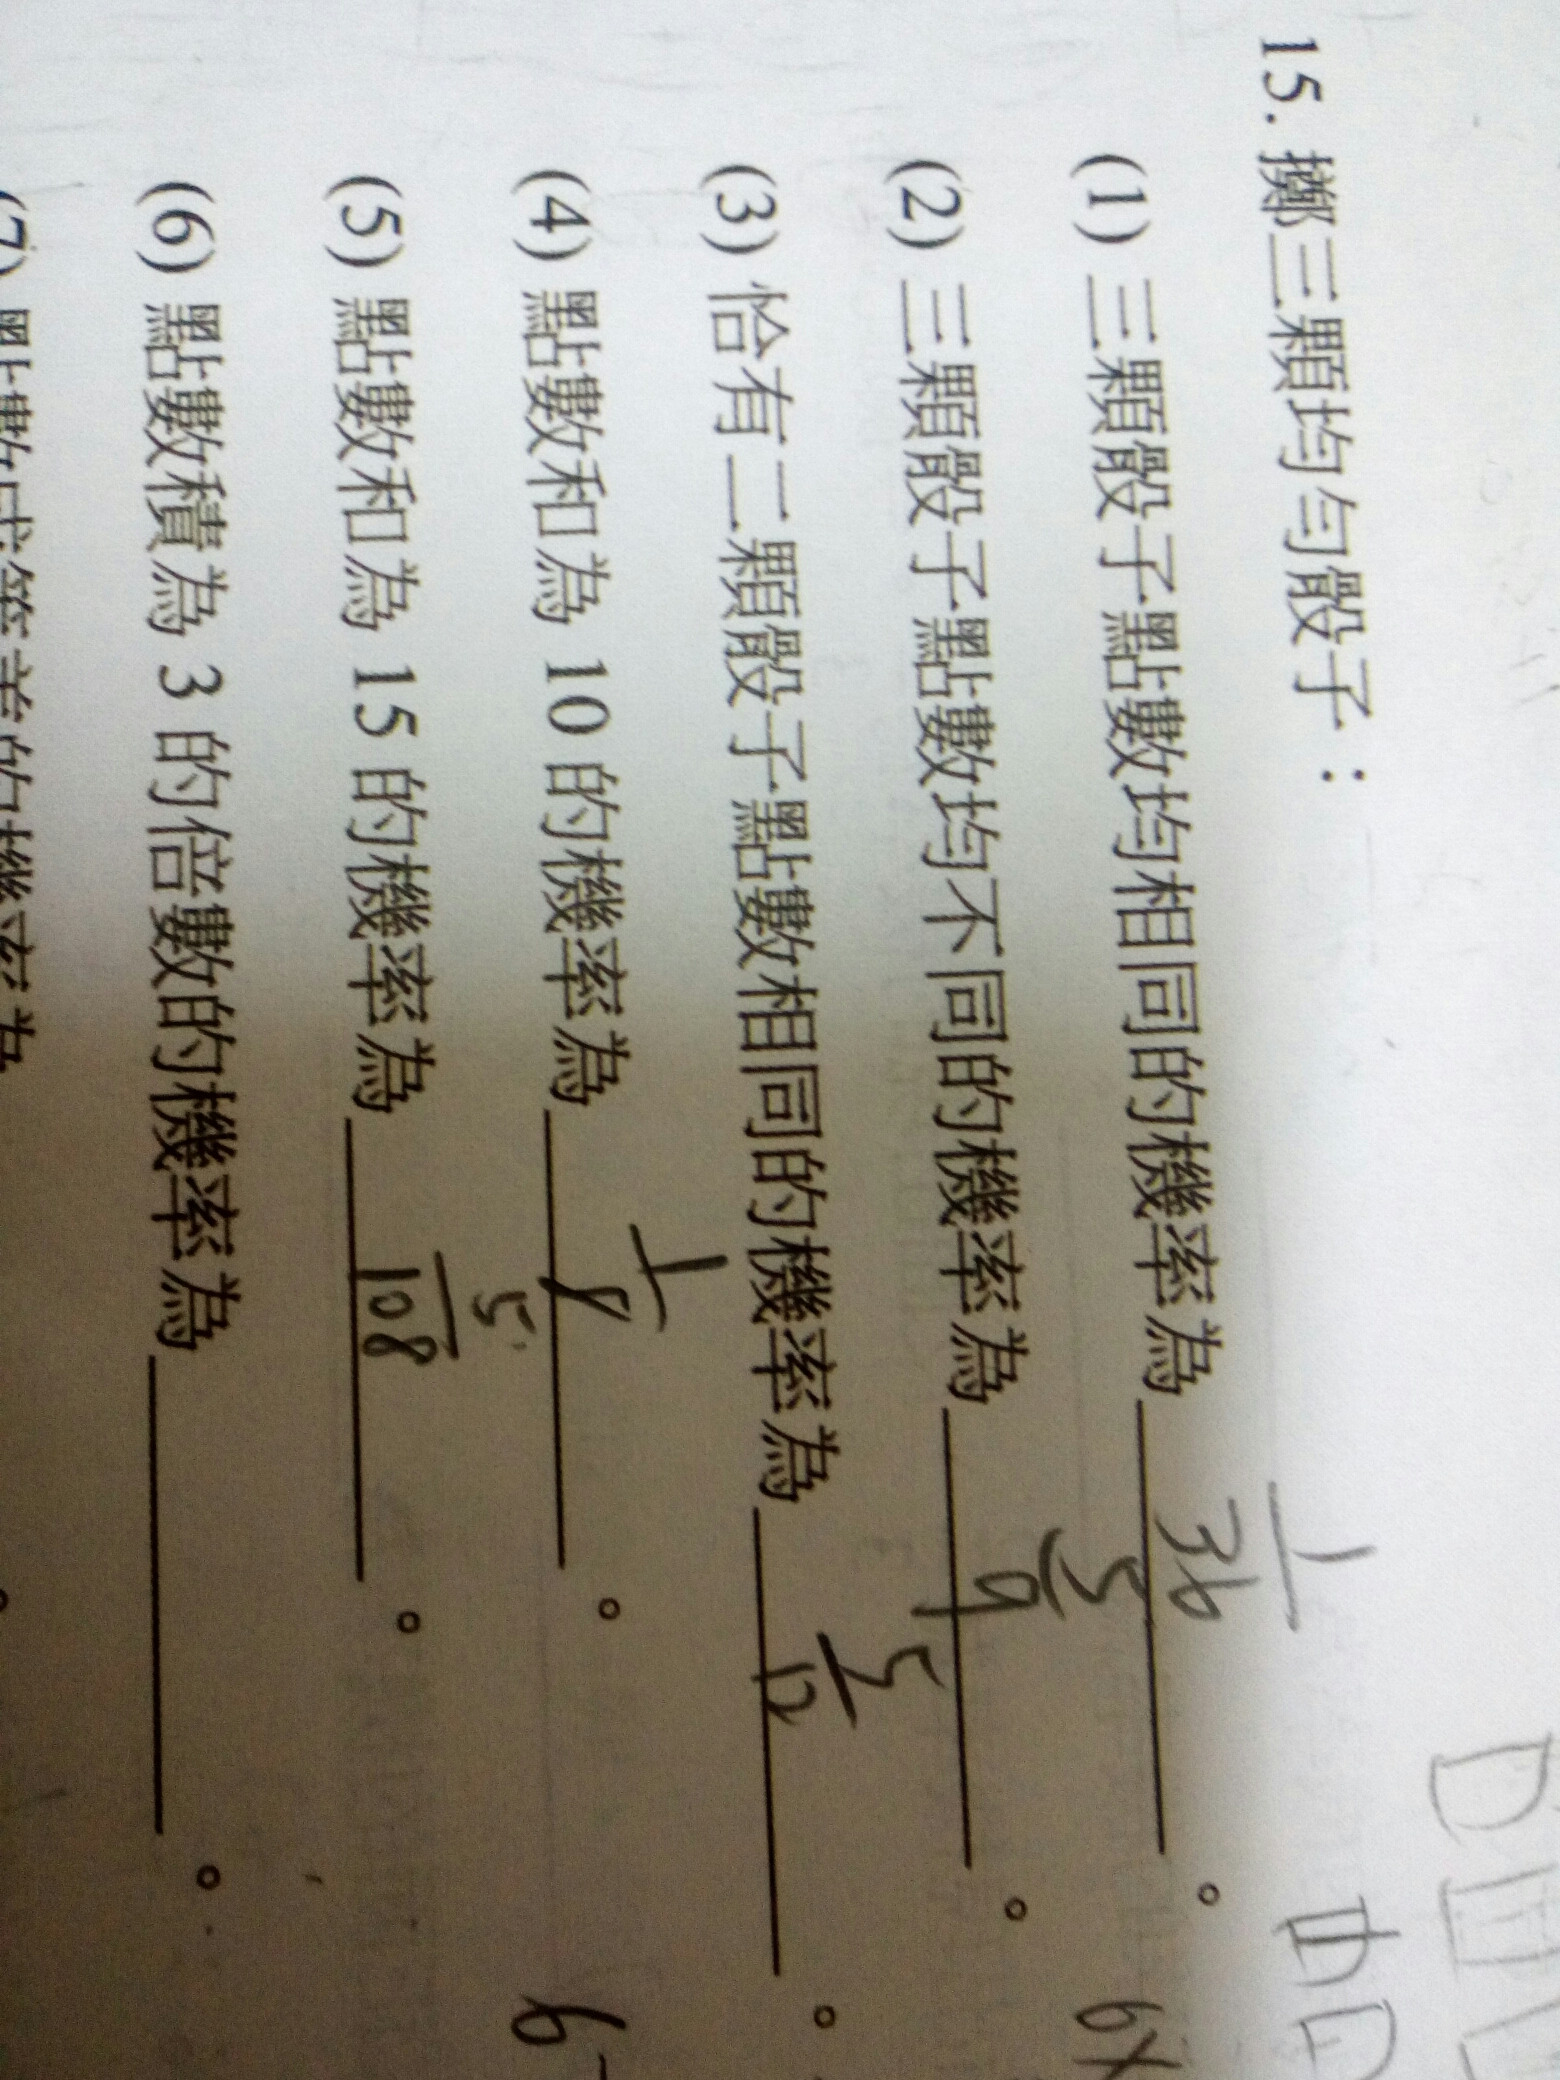 15. 擲三顆均勻骰子：
(1) 三顆骰子點數均相同的機率為 1/36 。
(2) 三顆骰子點數均不同的機率為 5/9 。
(3) 恰有二顆骰子點數相同的機率為 5/12 。
(4) 點數和為 10 的機率為 1/8 。
(5) 點數和為 15 的機率為 5/108 。
(6) 點數積為 3 的倍數的機率為 。
(7) 點數成等差的機率為 。